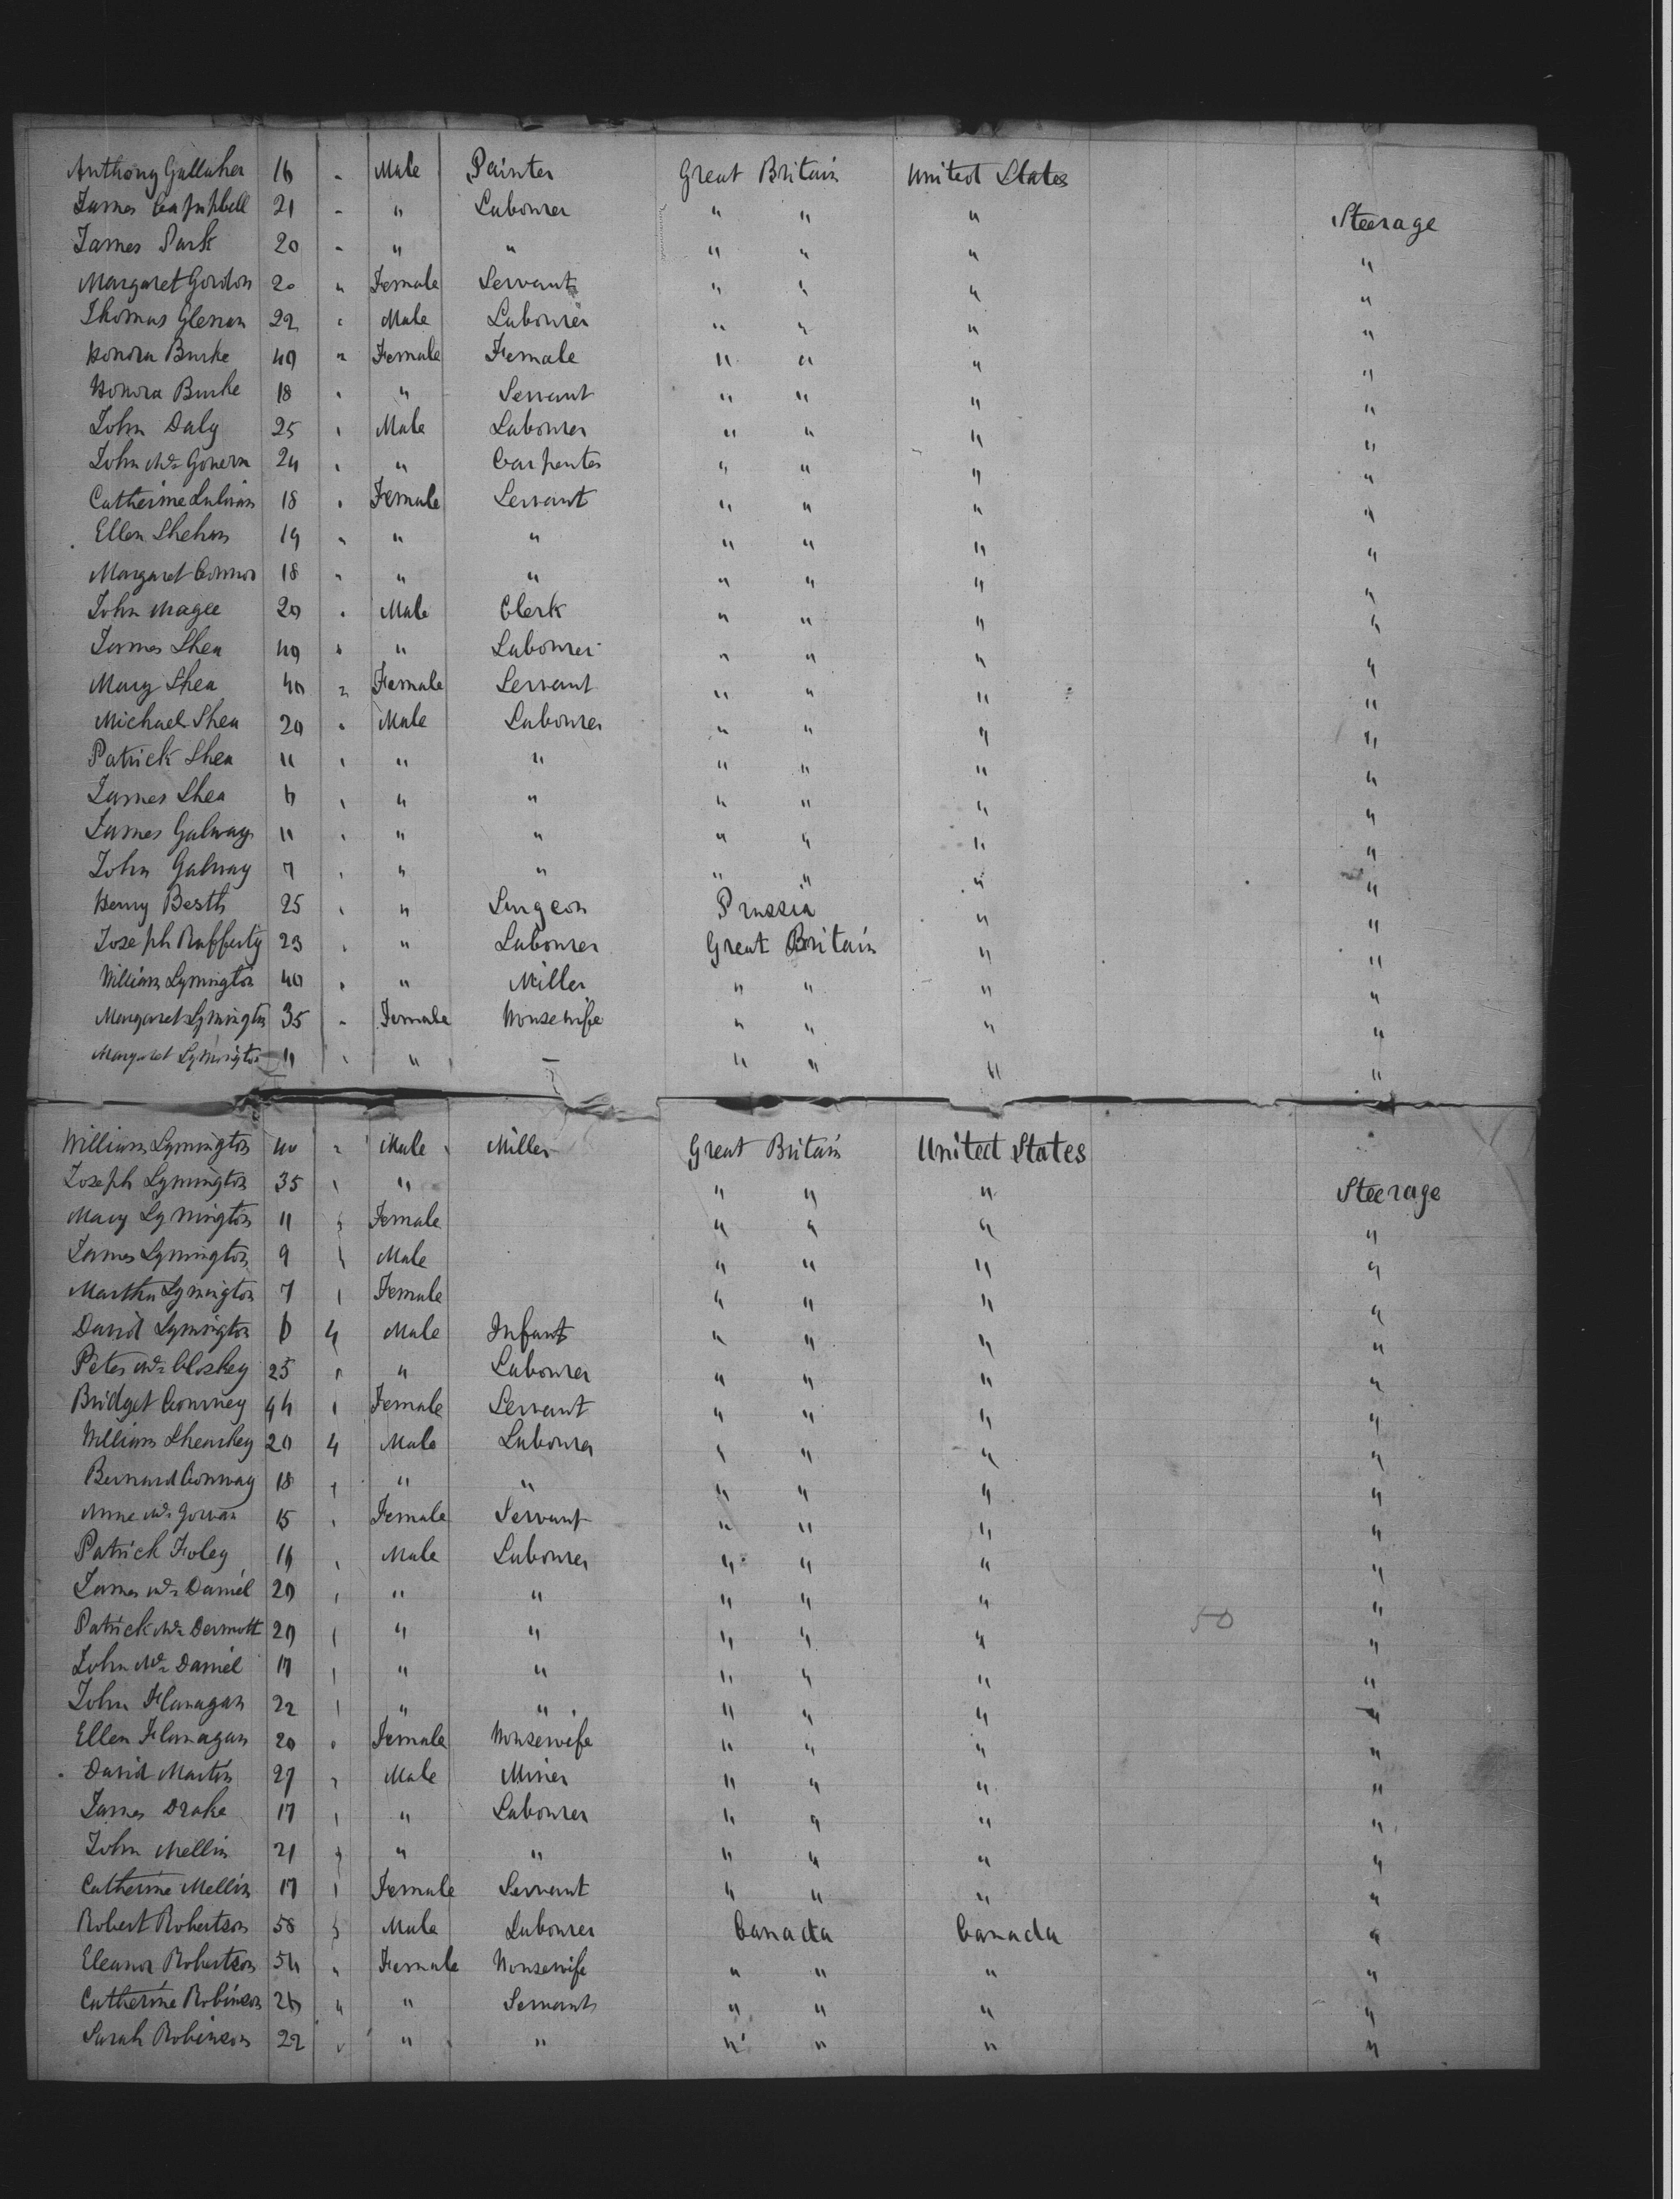 Anthony Gallaher 16 " Male Painter Great Britain United States
James Campbell 21 " " Labourer " " " Steerage
James Park 20 " " " " " " "
Margaret Gordon 20 " Female Servant " " " "
Thomas Glenan 22 " Male Labourer " " " "
Honora Burke 40 " Female Female " " " "
Honora Burke 18 " " Servant " " " "
John Daly 25 " Male Labourer " " " "
John Mc Govern 24 " " Carpenter " " " "
Catherine Sulivan 18 " Female Servant " " " "
Ellen Shehan 19 " " " " " " "
Margaret Connor 18 " " " " " " "
John Magee 20 " Male Clerk " " " "
James Shea 40 " " Labourer " " " "
Mary Shea 40 " Female Servant " " " "
Michael Shea 20 " Male Labourer " " " "
Patrick Shea 11 " " " " " " "
James Shea 6 " " " " " " "
James Galway 11 " " " " " " "
John Galway 7 " " " " " " "
Henry Besth 25 " " Surgeon Prussia " "
Joseph Rafferty 23 " " Labourer Great Britain " "
William Lymington 40 " " Miller " " " "
Margaret Lymington 35 " Female Housewife " " " "
Margaret Lymington 11 " " – " " " "
William Lymington 40 " Male Miller Great Britain United States
Joseph Lymington 35 " " " " " Steerage
Mary Lymington 11 " Female " " " "
James Lymington 9 " Male " " " "
Martha Lymington 7 " Female " " " "
David Lymington 6 " Male Infant " " " "
Peter Mc Closkey 25 " " Labourer " " " "
Bridget Courney 44 " Female Servant " " " "
William Shearkey 20 " Male Labourer " " " "
Bernard Conway 18 " " " " " " "
Anne Mc Gowan 15 " Female Servant " " " "
Patrick Foley 16 " Male Labourer " " " "
James Mc Daniel 20 " " " " " " "
Patrick Mc Dermott 20 " " " " " " 50 "
John Mc Daniel 17 " " " " " " "
John Flanagan 22 " " " " " " "
Ellen Flanagan 20 " Female Housewife " " " "
David Martin 27 " Male Miner " " " "
James Drake 17 " " Labourer " " " "
John Mellin 21 " " " " " " "
Catherine Mellin 17 " Female Servant " " " "
Robert Robertson 58 " Male Labourer Canada Canada "
Eleanor Robertson 54 " Female Housewife " " " "
Catherine Robinson 26 " " Servant " " " "
Sarah Robinson 22 " " " " " " "